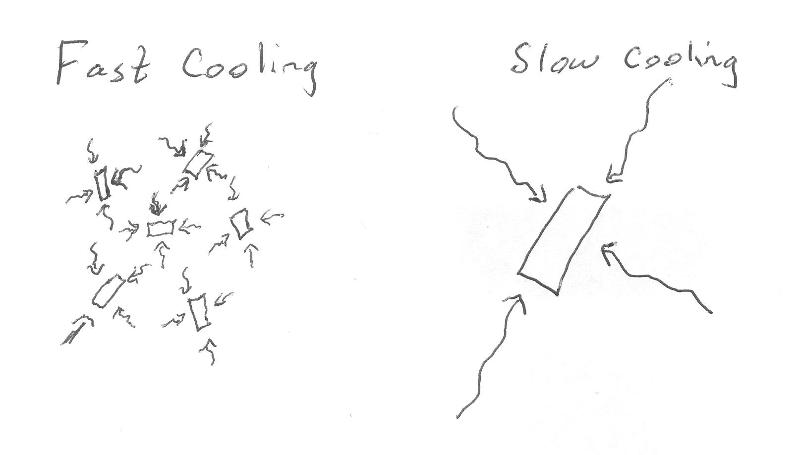 Fast Cooling
Slow cooling